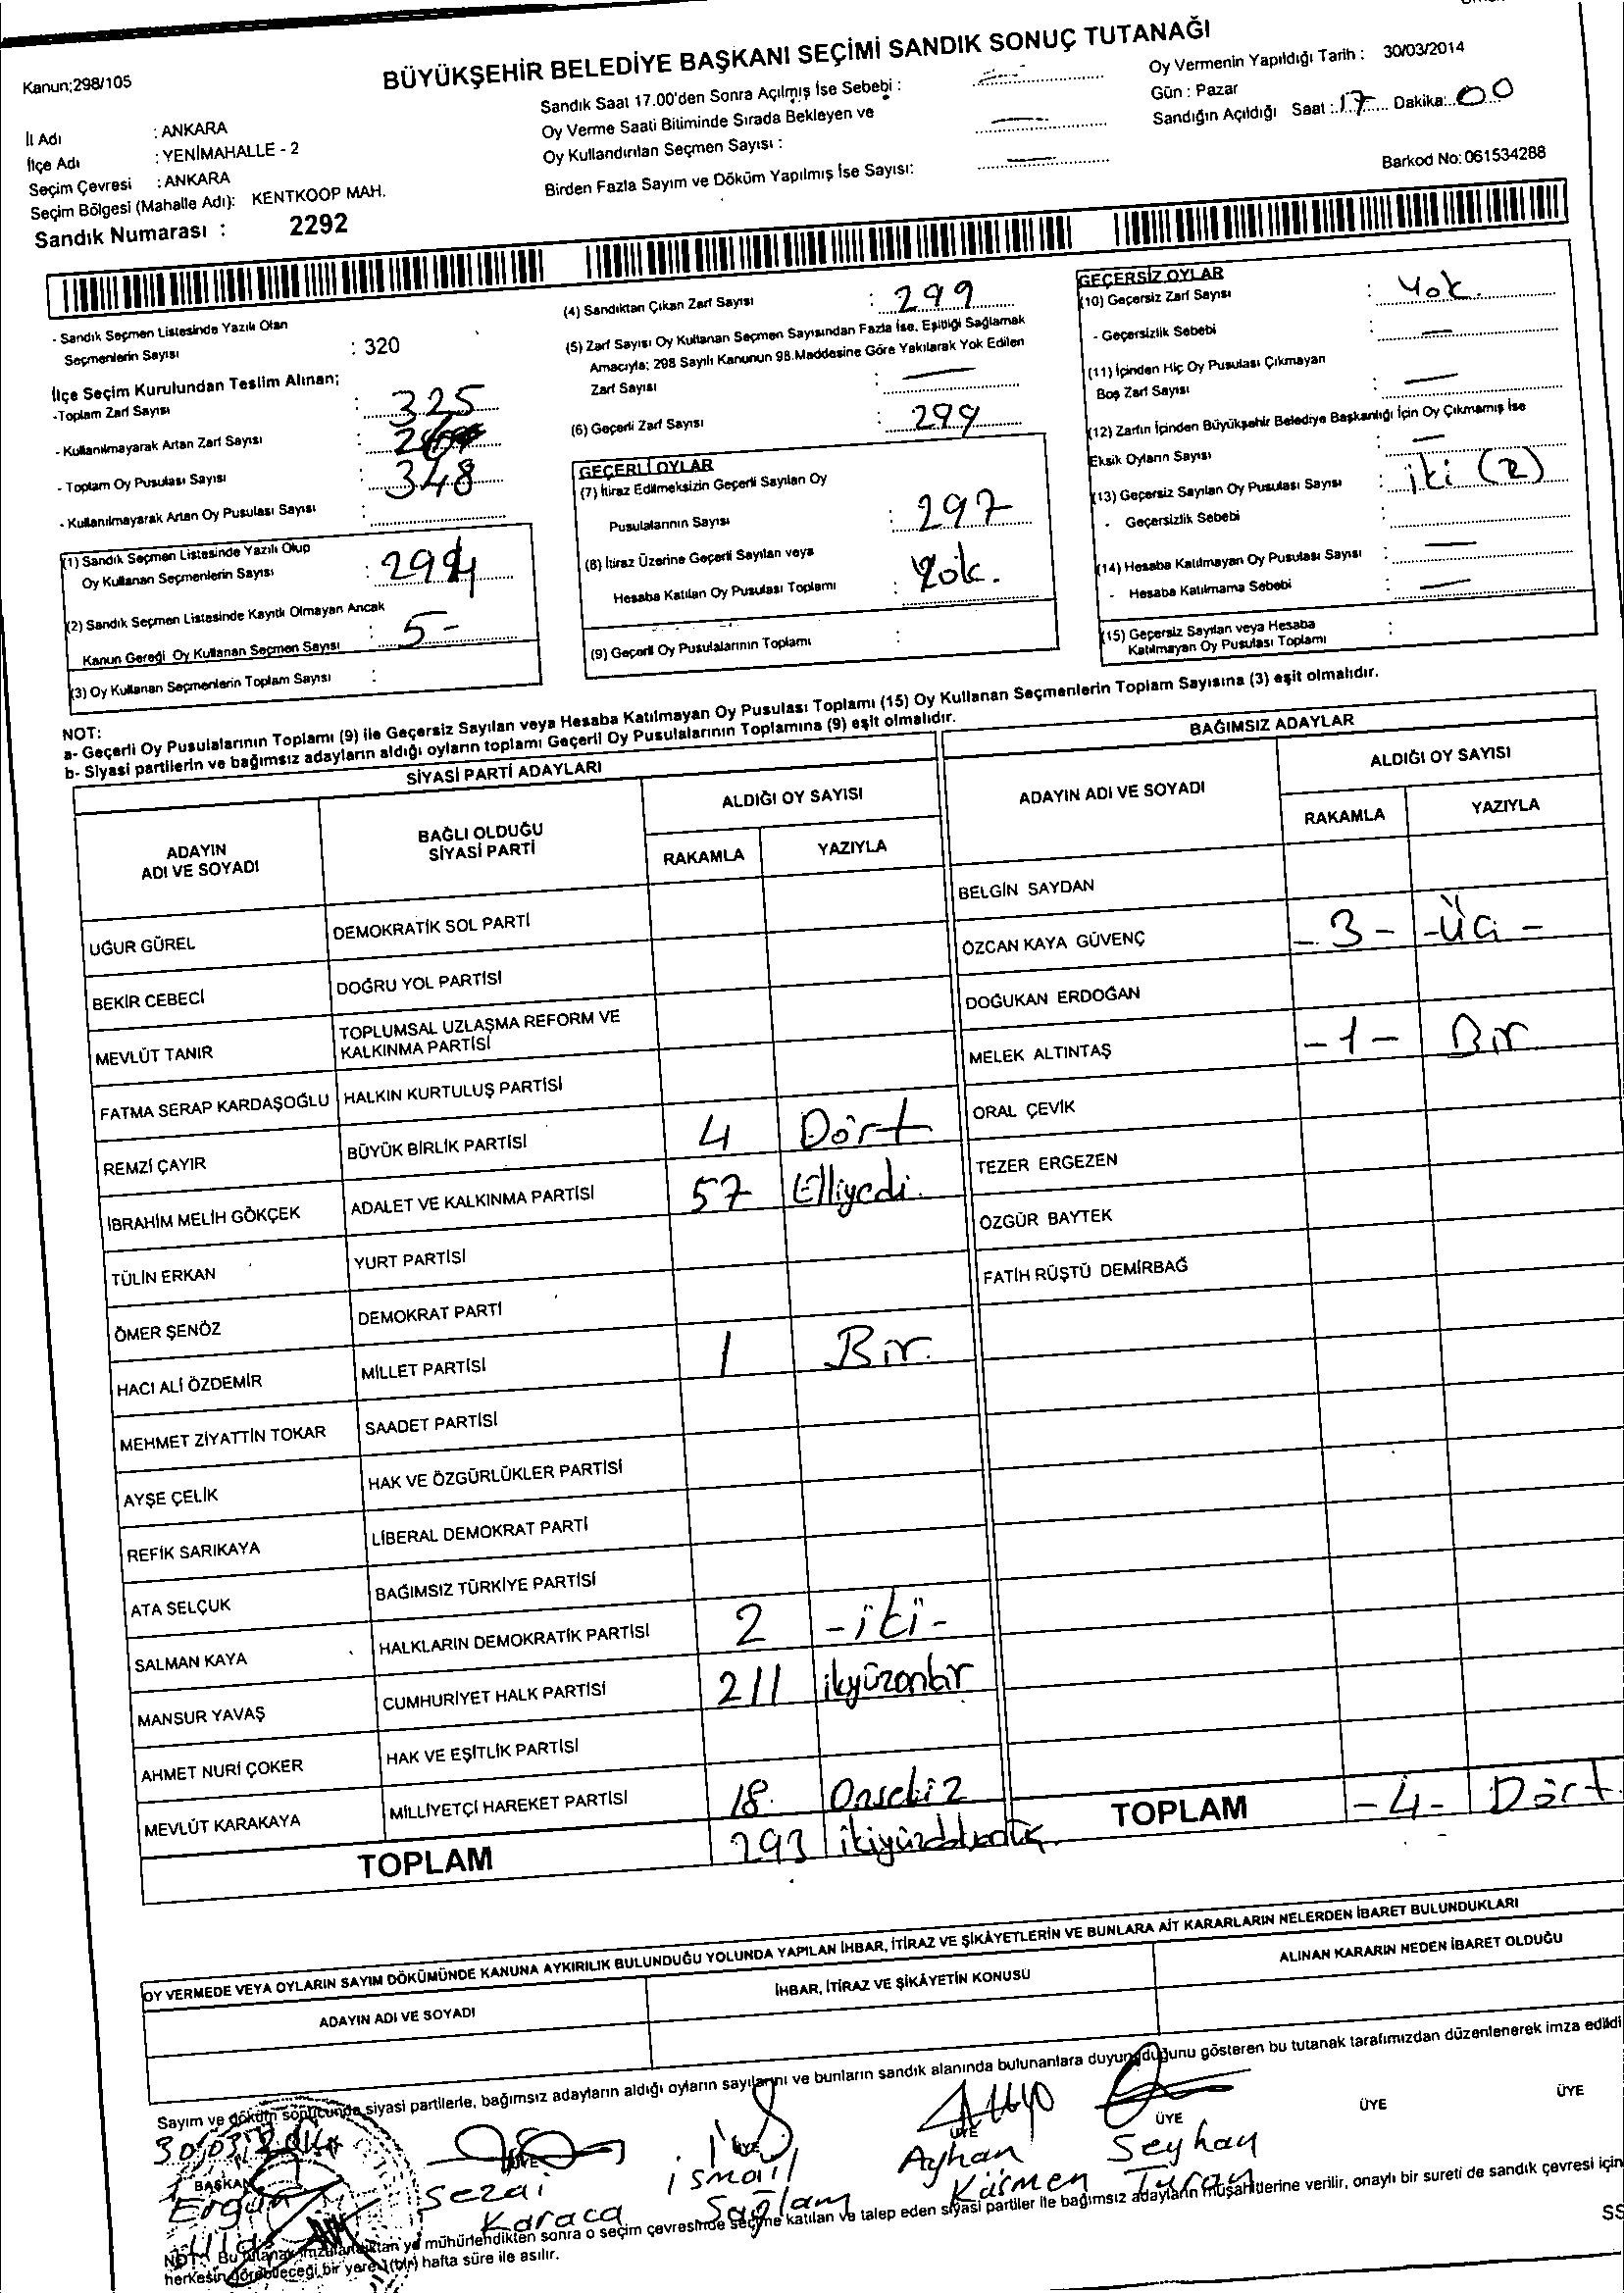 BÜYÜKŞEHİR BELEDİYE BAŞKANI SEÇİMİ SANDIK SONUÇ TUTANAĞI
Kanun;298/105
İl Adı : ANKARA
İlçe Adı : YENİMAHALLE - 2
Seçim Çevresi : ANKARA
Seçim Bölgesi (Mahalle Adı): KENTKOOP MAH.
Sandık Numarası : 2292
Sandık Saat 17.00'den Sonra Açılmış İse Sebebi :
Oy Verme Saati Bitiminde Sırada Bekleyen ve
Oy Kullandırılan Seçmen Sayısı :
Birden Fazla Sayım ve Döküm Yapılmış İse Sayısı:
Oy Vermenin Yapıldığı Tarih : 30/03/2014
Gün : Pazar
Sandığın Açıldığı Saat : 17 Dakika: 00
Barkod No: 061534288
- Sandık Seçmen Listesinde Yazılı Olan
Seçmenlerin Sayısı : 320
İlçe Seçim Kurulundan Teslim Alınan;
-Toplam Zarf Sayısı : 325
- Kullanılmayarak Artan Zarf Sayısı :
- Toplam Oy Pusulası Sayısı : 348
- Kullanılmayarak Artan Oy Pusulası Sayısı :
(1) Sandık Seçmen Listesinde Yazılı Olup
Oy Kullanan Seçmenlerin Sayısı : 294
(2) Sandık Seçmen Listesinde Kayıtlı Olmayan Ancak
Kanun Gereği Oy Kullanan Seçmen Sayısı : 5 -
(3) Oy Kullanan Seçmenlerin Toplam Sayısı :
(4) Sandıktan Çıkan Zarf Sayısı : 299
(5) Zarf Sayısı Oy Kullanan Seçmen Sayısından Fazla İse, Eşitliği Sağlamak
Amacıyla; 298 Sayılı Kanunun 98.Maddesine Göre Yakılarak Yok Edilen
Zarf Sayısı : —
(6) Geçerli Zarf Sayısı : 299
GEÇERLİ OYLAR
(7) İtiraz Edilmeksizin Geçerli Sayılan Oy
Pusulalarının Sayısı : 297
(8) İtiraz Üzerine Geçerli Sayılan veya
Hesaba Katılan Oy Pusulası Toplamı : Yok.
(9) Geçerli Oy Pusulalarının Toplamı :
GEÇERSİZ OYLAR
(10) Geçersiz Zarf Sayısı : Yok.
- Geçersizlik Sebebi : —
(11) İçinden Hiç Oy Pusulası Çıkmayan
Boş Zarf Sayısı : —
(12) Zarfın İçinden Büyükşehir Belediye Başkanlığı İçin Oy Çıkmamış İse
Eksik Oyların Sayısı : —
(13) Geçersiz Sayılan Oy Pusulası Sayısı : iki (2)
- Geçersizlik Sebebi :
(14) Hesaba Katılmayan Oy Pusulası Sayısı : —
- Hesaba Katılmama Sebebi : —
(15) Geçersiz Sayılan veya Hesaba
Katılmayan Oy Pusulası Toplamı :
NOT:
a- Geçerli Oy Pusulalarının Toplamı (9) ile Geçersiz Sayılan veya Hesaba Katılmayan Oy Pusulası Toplamı (15) Oy Kullanan Seçmenlerin Toplam Sayısına (3) eşit olmalıdır.
b- Siyasi partilerin ve bağımsız adayların aldığı oyların toplamı Geçerli Oy Pusulalarının Toplamına (9) eşit olmalıdır.
SİYASİ PARTİ ADAYLARI
ADAYIN ADI VE SOYADI BAĞLI OLDUĞU SİYASİ PARTİ ALDIĞI OY SAYISI
RAKAMLA YAZIYLA
UĞUR GÜREL DEMOKRATİK SOL PARTİ
BEKİR CEBECİ DOĞRU YOL PARTİSİ
MEVLÜT TANIR TOPLUMSAL UZLAŞMA REFORM VE KALKINMA PARTİSİ
FATMA SERAP KARDAŞOĞLU HALKIN KURTULUŞ PARTİSİ
REMZİ ÇAYIR BÜYÜK BİRLİK PARTİSİ 4 Dört
İBRAHİM MELİH GÖKÇEK ADALET VE KALKINMA PARTİSİ 57 Elliyedi.
TÜLİN ERKAN YURT PARTİSİ
ÖMER ŞENÖZ DEMOKRAT PARTİ
HACI ALİ ÖZDEMİR MİLLET PARTİSİ 1 Bir.
MEHMET ZİYATTİN TOKAR SAADET PARTİSİ
AYŞE ÇELİK HAK VE ÖZGÜRLÜKLER PARTİSİ
REFİK SARIKAYA LİBERAL DEMOKRAT PARTİ
ATA SELÇUK BAĞIMSIZ TÜRKİYE PARTİSİ
SALMAN KAYA HALKLARIN DEMOKRATİK PARTİSİ 2 -iki-
MANSUR YAVAŞ CUMHURİYET HALK PARTİSİ 211 ikiyüzonbir
AHMET NURİ ÇOKER HAK VE EŞİTLİK PARTİSİ
MEVLÜT KARAKAYA MİLLİYETÇİ HAREKET PARTİSİ 18. Onsekiz
TOPLAM 293 ikiyüzdoksanüç
BAĞIMSIZ ADAYLAR
ADAYIN ADI VE SOYADI ALDIĞI OY SAYISI
RAKAMLA YAZIYLA
BELGİN SAYDAN
ÖZCAN KAYA GÜVENÇ - 3 - - Üç -
DOĞUKAN ERDOĞAN
MELEK ALTINTAŞ - 1 - Bir
ORAL ÇEVİK
TEZER ERGEZEN
ÖZGÜR BAYTEK
FATİH RÜŞTÜ DEMİRBAĞ
TOPLAM - 4 - Dört
OY VERMEDE VEYA OYLARIN SAYIM DÖKÜMÜNDE KANUNA AYKIRILIK BULUNDUĞU YOLUNDA YAPILAN İHBAR, İTİRAZ VE ŞİKÂYETLERİN VE BUNLARA AİT KARARLARIN NELERDEN İBARET BULUNDUKLARI
ADAYIN ADI VE SOYADI İHBAR, İTİRAZ VE ŞİKÂYETİN KONUSU ALINAN KARARIN NEDEN İBARET OLDUĞU
Sayım ve döküm sonucunda siyasi partilerle, bağımsız adayların aldığı oyların sayılarını ve bunların sandık alanında bulunanlara duyurulduğunu gösteren bu tutanak tarafımızdan düzenlenerek imza edildi
30/03/2014
BAŞKAN ÜYE ÜYE ÜYE ÜYE ÜYE ÜYE
Ergün
Sezai Karaca
ismail Sağlam
Ayhan Kösmen
Seyhan Turan
NOT: Bu tutanak imzalandıktan ve mühürlendikten sonra o seçim çevresinde seçime katılan ve talep eden siyasi partiler ile bağımsız adayların müşahitlerine verilir, onaylı bir sureti de sandık çevresi için
herkesin görebileceği bir yere 1(bir) hafta süre ile asılır.